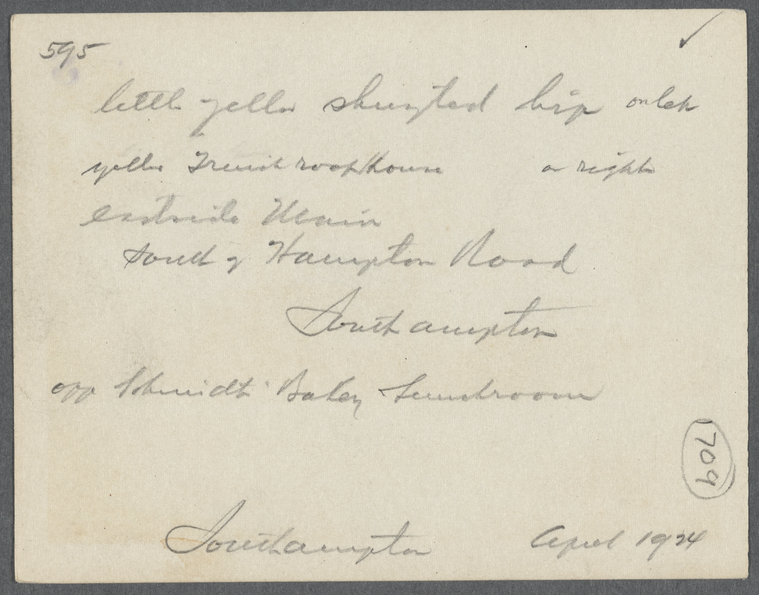 595
little yello shingled hip on left
yello French roof house on right
eastside Main
South of Hampton Road
Southampton
opp Schmidt Bakery Lunchroom
1709
Southampton April 1924